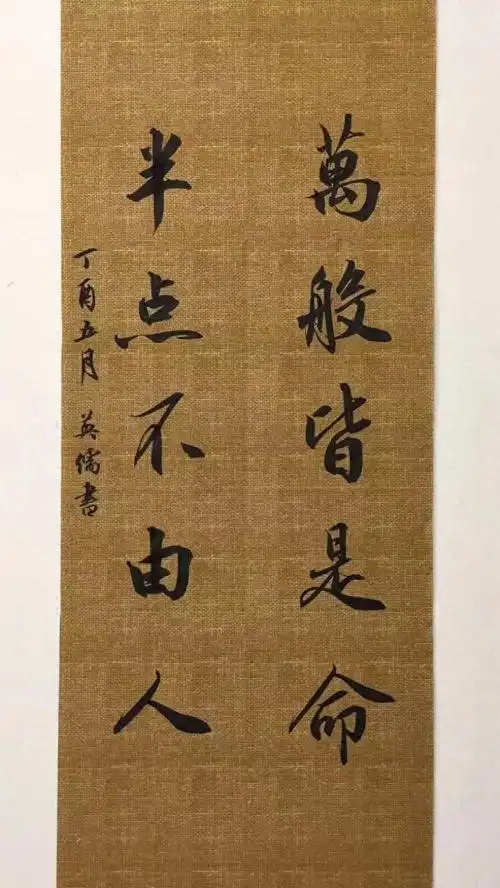 萬般皆是命
半点不由人
丁酉五月 英儒書